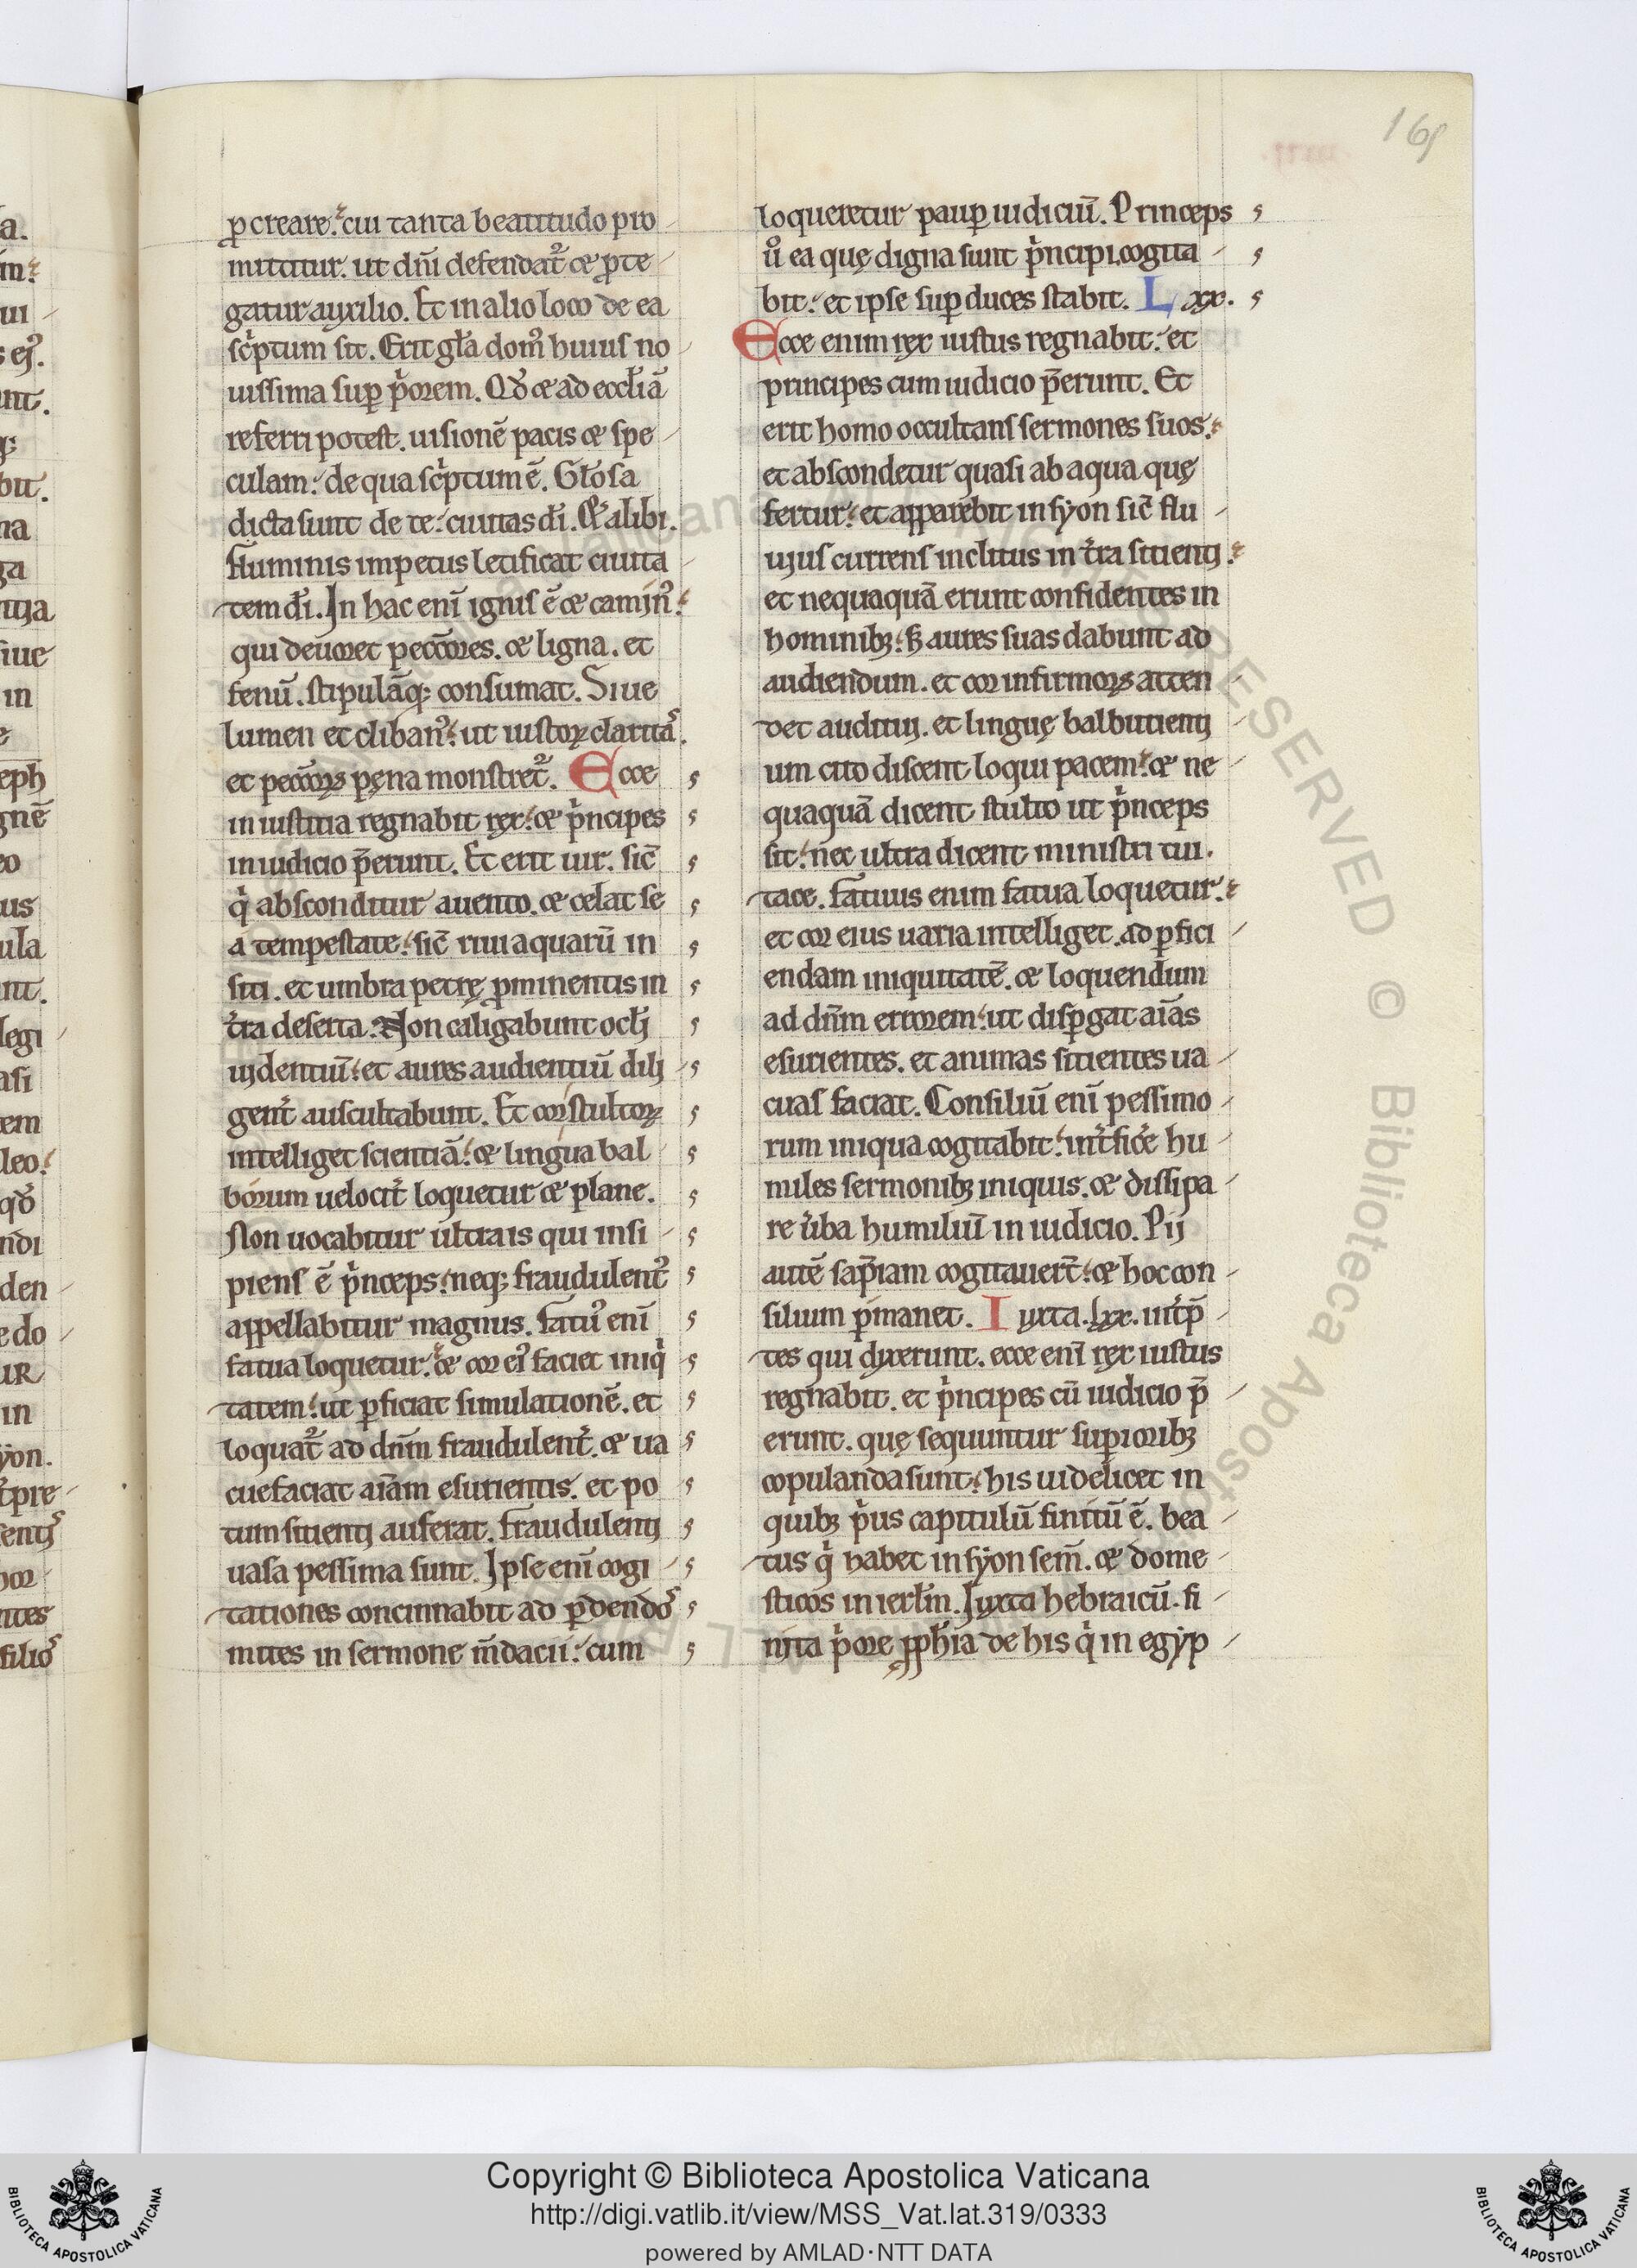 165
p̱creare. cui tanta beatitudo pro
mittitur. ut dñi defendat᷑ et ꝓte
gatur auxilio. Et in alio loco de ea
sc͛ptum sit. Erit gl̃a domꝰ huius no
uissima sup p͛orem. Qd̕ et ad eccl̃iã
referri potest. uisionẽ pacis et spe
culam. de qua sc͛ptum ẽ. Gl̃osa
dicta sunt de te. ciuitas dĩ. Et alibi.
Fluminis impetus letificat ciuita
tem dĩ. In hac enĩ ignis ẽ et caminꝰ.
qui deuoret peccõres. et ligna. et
fenũ. stipulãqꝫ consumat. Siue
lumen et clibanꝰ. ut iustoꝝ claritas.
et peccõꝝ pęna monstret᷑. Ecce
in iustitia regnabit rex. et p͛ncipes
in iudicio p̃erunt. Et erit uir. sic̃
q͛ absconditur a uento. et celat se
a tempestate. sic̃ riui aquarũ in
siti. et umbra petrę ꝓminentis in
t̃ra deserta. Non caligabunt ocl̃i
uidentiũ. et aures audientiũ dili
gent̃ auscultabunt. Et cor stultoꝝ
intelliget scientiã. et lingua bal
borum uelocit̃ loquetur et plane.
Non uocabitur ultra is qui insi
piens ẽ p͛nceps. neqꝫ fraudulentꝰ
appellabitur magnus. Fatuꝰ enĩ
fatua loquetur. et cor eiꝰ faciet iniq͛
tatem. ut ꝑficiat simulationẽ. et
loquat᷑ ad dñm fraudulent̃. et ua
cuefaciat aĩam esurientis. et po
tum sitienti auferat. Fraudulenti
uasa pessima sunt. Ipse enĩ cogi
tationes concinnabit ad ꝑdendos
mites in sermone m̃dacii. cum
loqueretur pauꝑ iudiciũ. Princeps
ů ea quę digna sunt p͛ncipi. cogita
bit. et ipse suꝑ duces stabit. Lxx.
Ecce enim rex iustus regnabit. et
principes cum iudicio p̃erunt. Et
erit homo occultans sermones suos.
et abscondetur quasi ab aqua quę
fertur. et apparebit in syon sic̃ flu
uius currens inclitus in t̃ra sitienti.
et nequaquã erunt confidentes in
hominibꝫ. sꝫ aures suas dabunt ad
audiendum. et cor infirmoꝝ atten
det auditui. et linguę balbutienti
um cito discent loqui pacem. et ne
quaquã dicent stulto ut p͛nceps
sit. nec ultra dicent ministri tui.
tace. fatuus enim fatua loquetur.
et cor eius uaria intelliget. ad ꝑfici
endam iniquitatẽ. et loquendum
ad dñm errorem. ut disꝑgat aĩas
esurientes. et animas sitientes ua
cuas faciat. Consiliũ enĩ pessimo
rum iniqua cogitabit. int̃fic̃e hu
miles sermonibꝫ iniquis. et dissipa
re u̕ba humiliũ in iudicio. Pii
autẽ sap̃iam cogitauer̃t. et hoc con
silium ꝑmanet. Iuxta. lxx. int̃p̃
tes qui dixerunt. ecce enĩ rex iustus
regnabit. et p͛ncipes cũ iudicio p̃
erunt. quę sequuntur suꝑioribꝫ
copulanda sunt. his uidelicet in
quibꝫ p͛us capitulũ finitũ ẽ. bea
tus q͛ habet in syon sem̃. et dome
sticos in ierl̃m. Iuxta hebraicũ. fi
nita p͛ore ꝓph̃ia de his q͛ in egyp
Copyright © Biblioteca Apostolica Vaticana
http://digi.vatlib.it/view/MSS_Vat.lat.319/0333
powered by AMLAD·NTT DATA
BIBLIOTECA APOSTOLICA VATICANA
BIBLIOTECA APOSTOLICA VATICANA